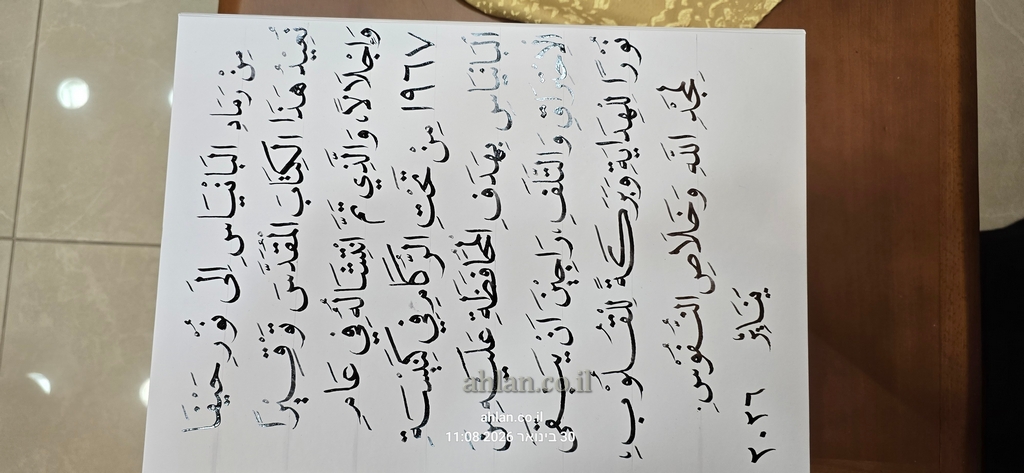 مِنْ رَمَادِ البَانْيَاسِ إِلَى نُوْرِ حَيْفَا
نُعِيْدُ هَذَا الكِتَابَ المُقَدَّسَ تَوْقِيْرًا
وَإِجْلَالًا، وَالَّذِي تَمَّ انْتِشَالُهُ فِي عَامِ
١٩٦٧ مِنْ تَحْتِ الرُّكَامِ فِي كَنِيْسَةِ
الْبَانْيَاسِ بِهَدَفِ المُحَافَظَةِ عَلَيْهِ مِنَ
الْاحْتِرَاقِ وَالتَّلَفِ، رَاجِيْنَ أَنْ يَبْقَى
نُورًا لِلْهِدَايَةِ وَبَرَكَةً لِلْقُلُوْبِ،
لِمَجْدِ اللهِ وَخَلَاصِ النُّفُوْسِ.
يَنَايِرُ ٢٠٢٦
ahlan.co.il
ahlan.co.il
30 בינואר 2026 11:08